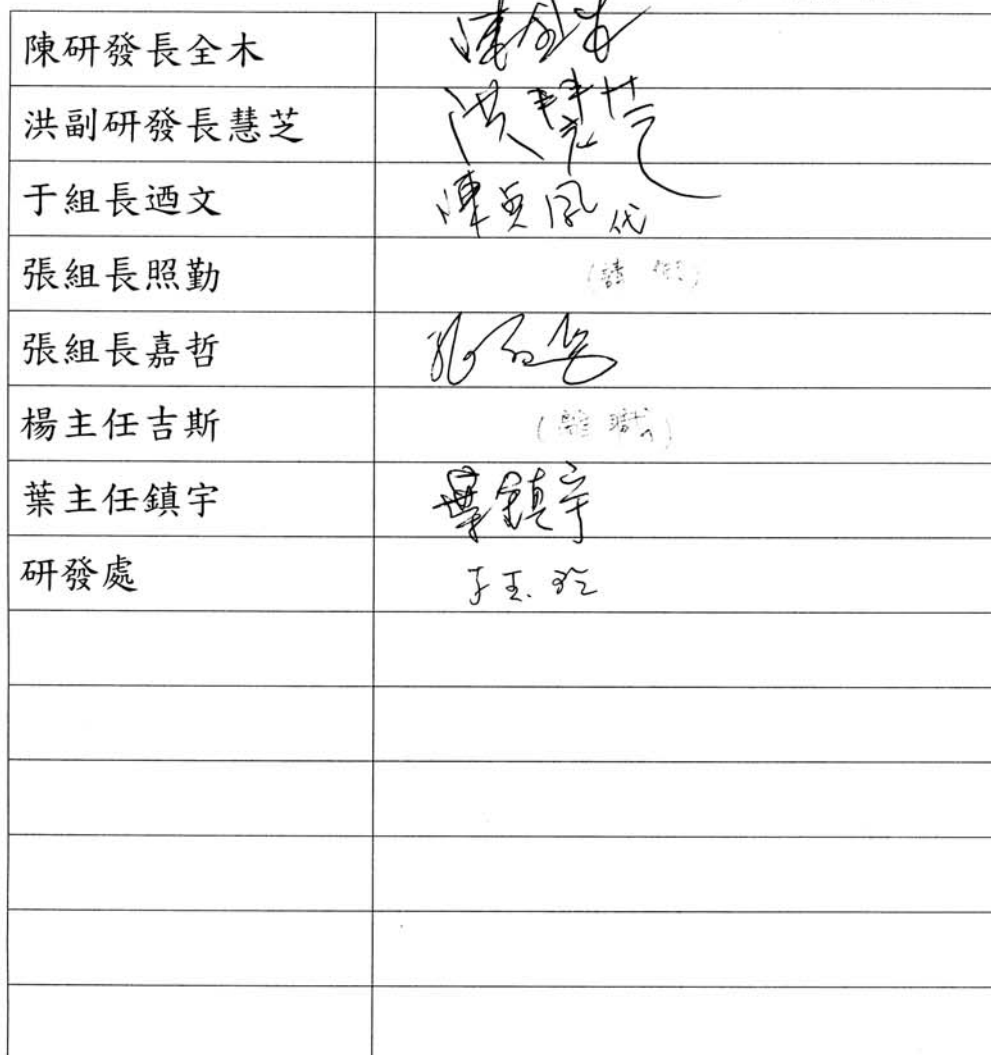 陳研發長全木 陳全木
洪副研發長慧芝 洪慧芝
于組長迺文 陳貞風代
張組長照勤 (請假)
張組長嘉哲 張嘉哲
楊主任吉斯 (離職)
葉主任鎮宇 葉鎮宇
研發處